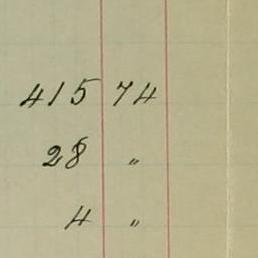 415 74
28 "
4 "